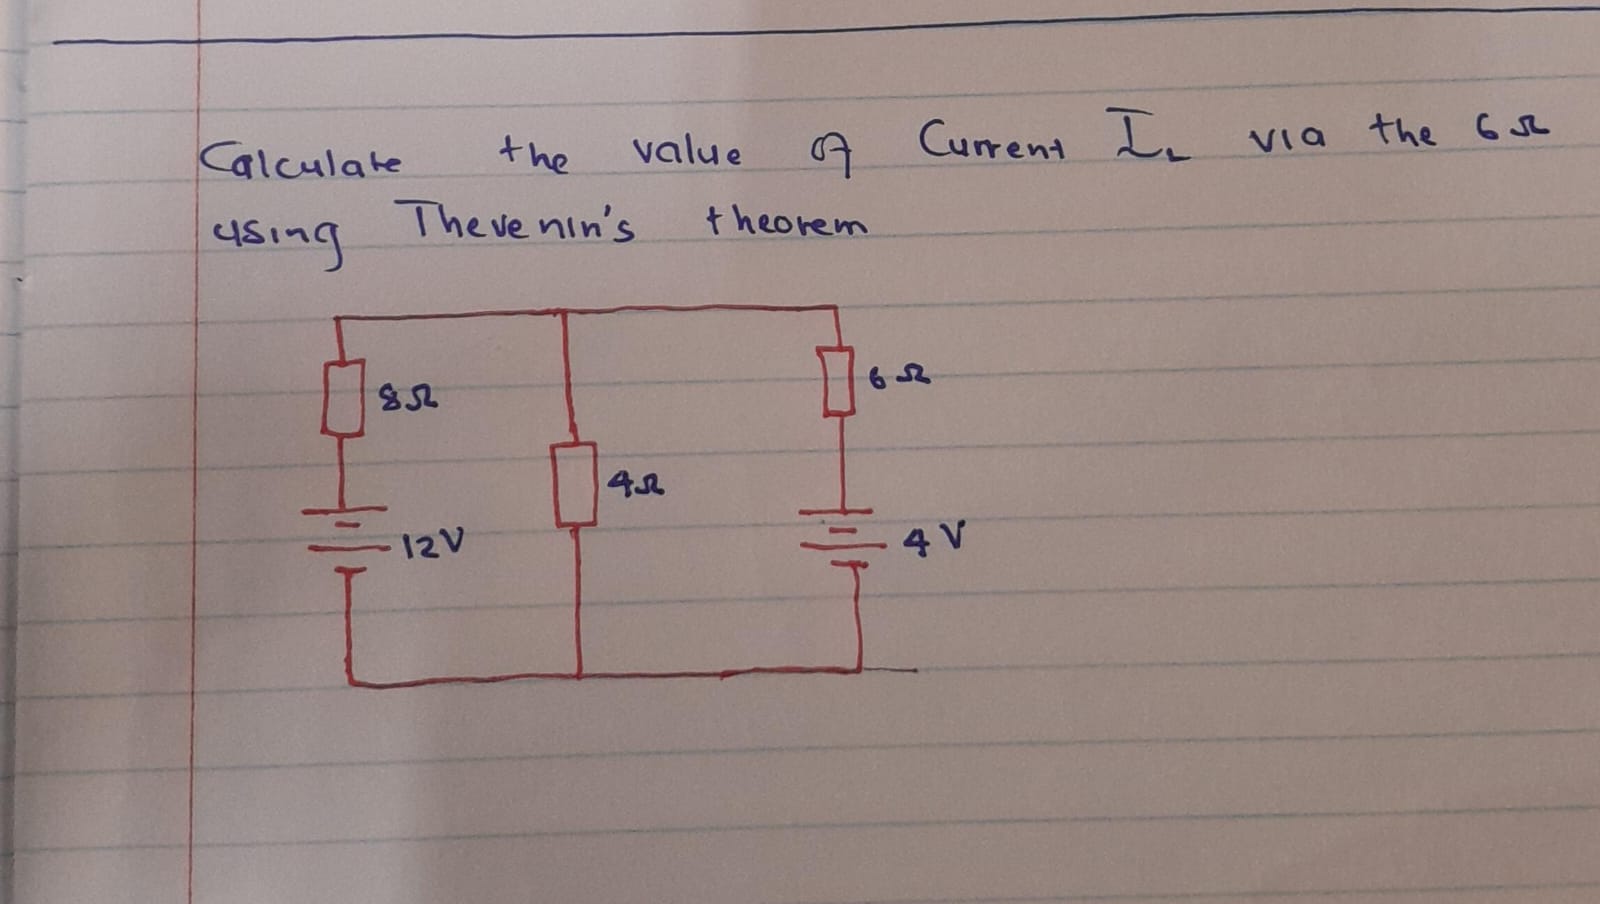 Calculate the value of Current I_L via the 6Ω
using Thevenin's theorem
8Ω
6Ω
4Ω
12V
4V